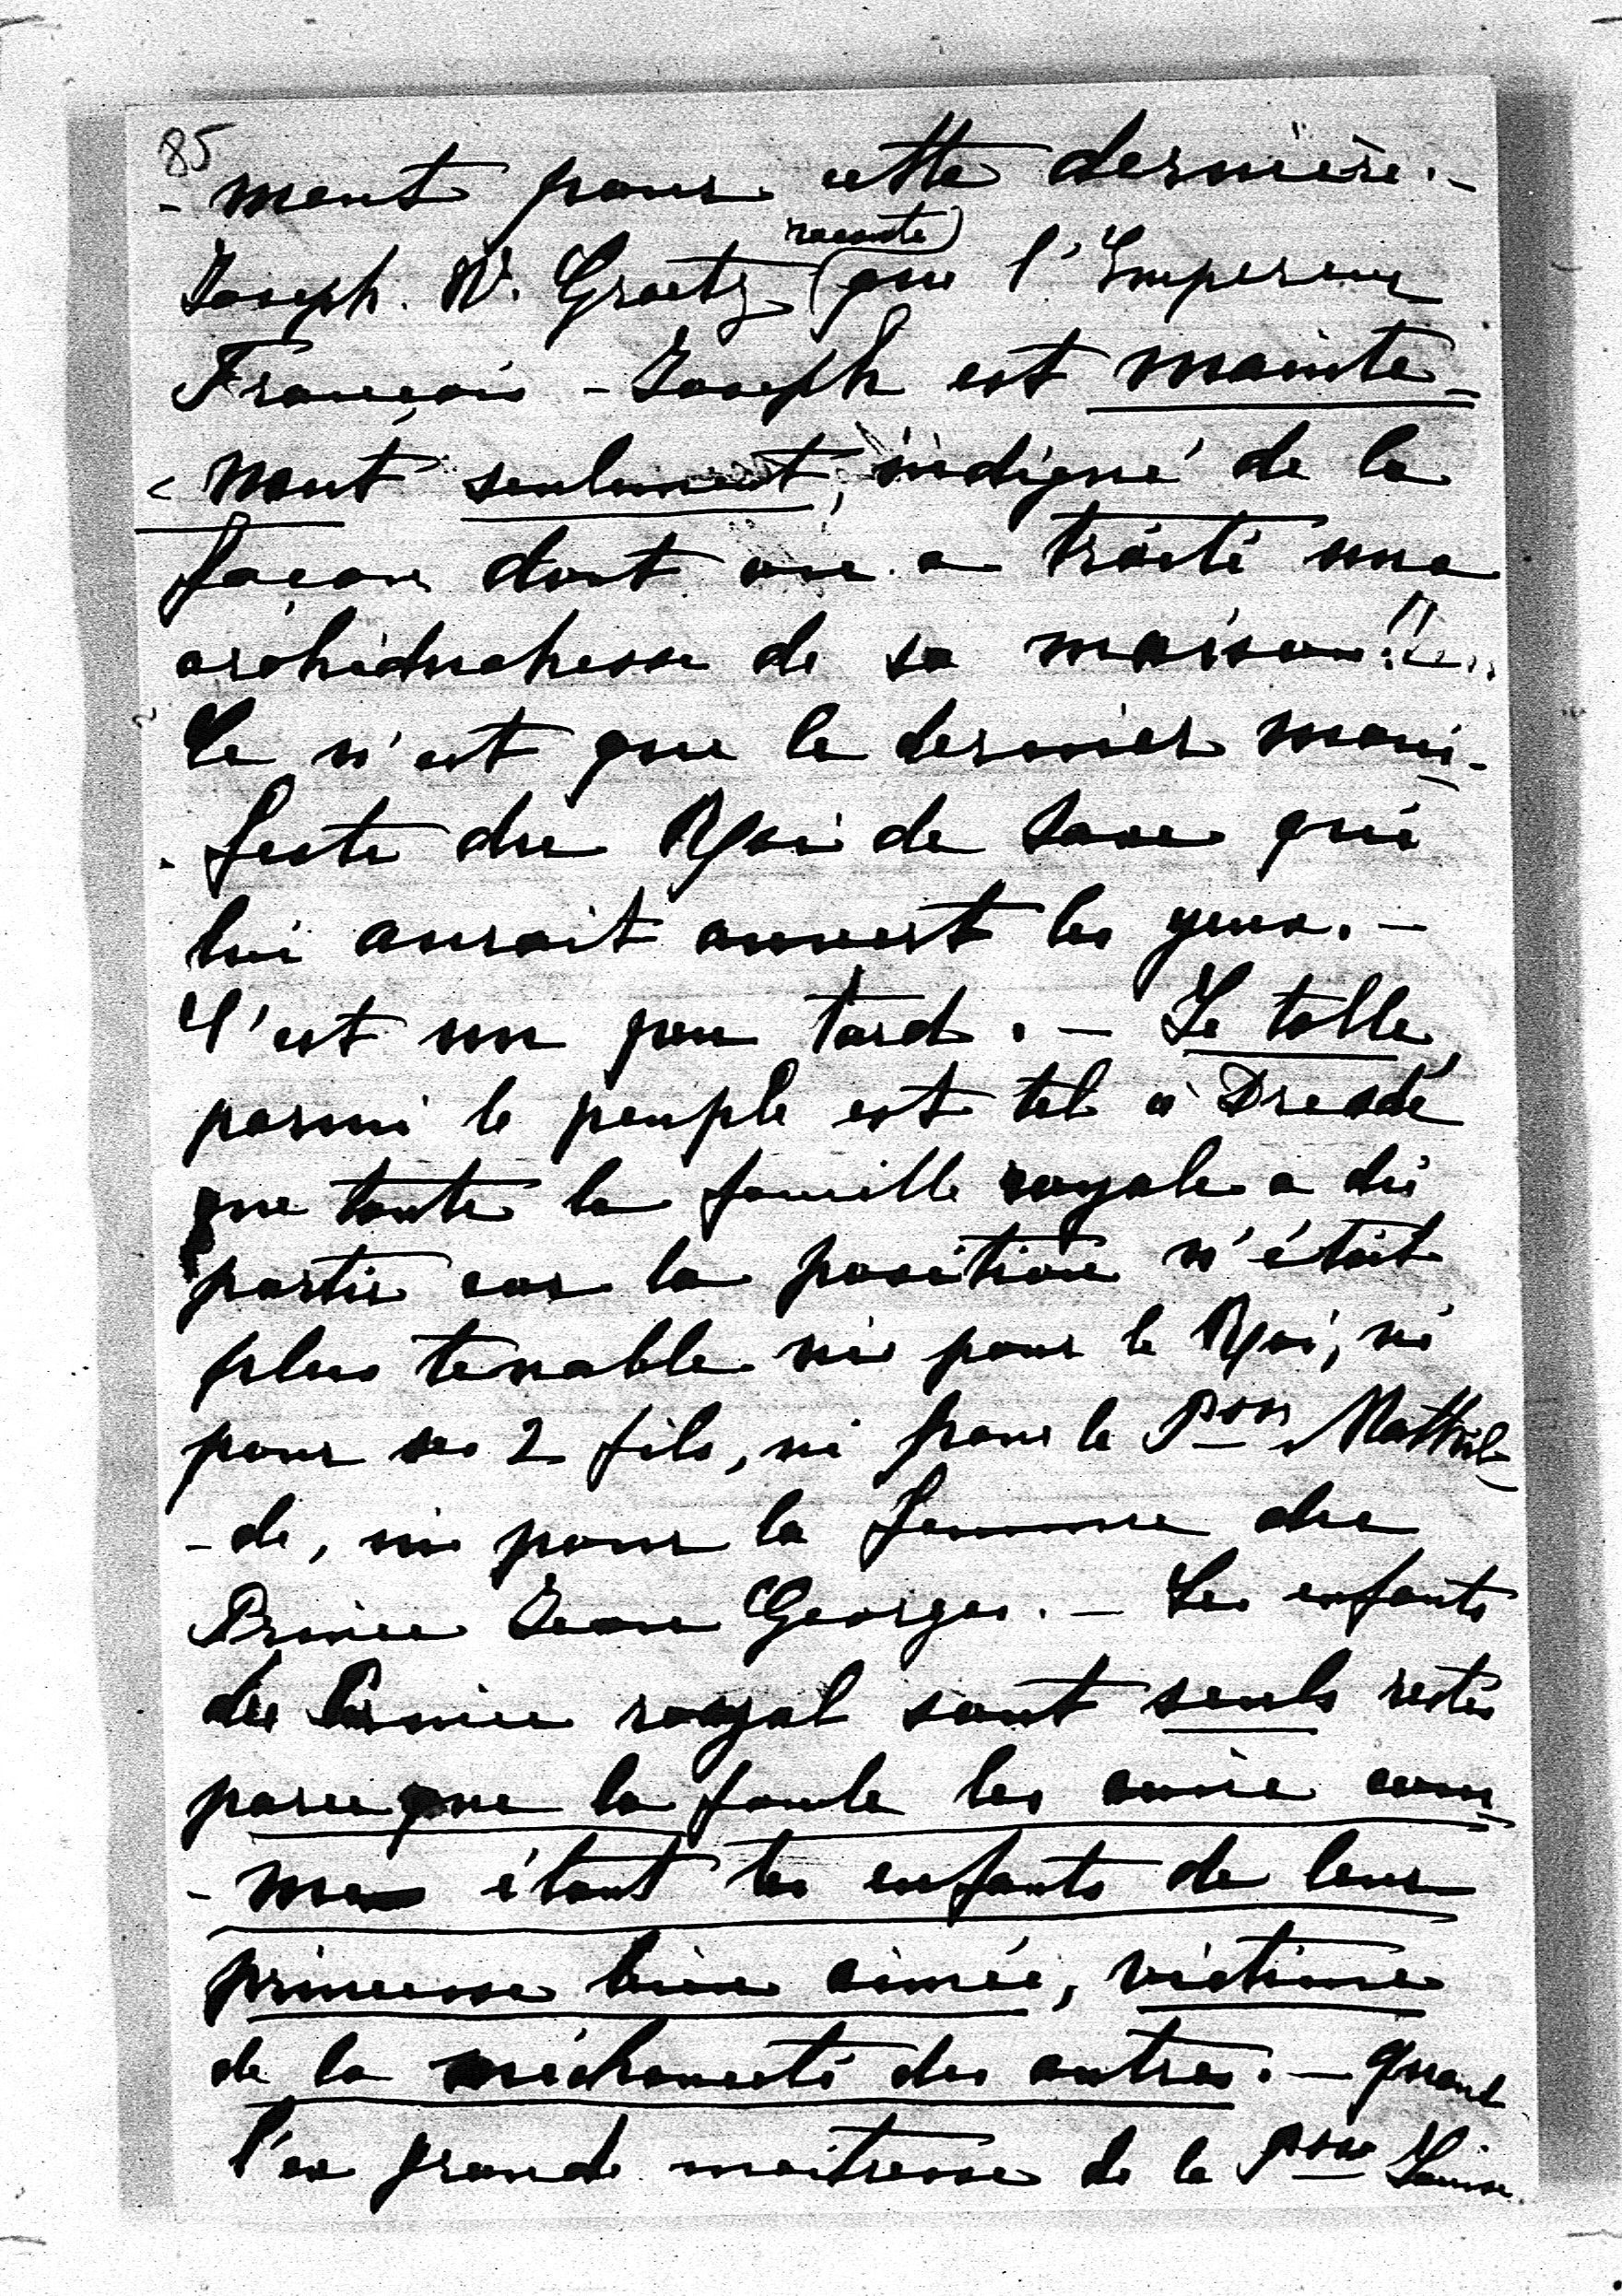 85
- ment pour cette dernière. -
raconte
Joseph. W. Graetz que l'Empereur
François - Joseph est mainte-
- nant seulement, indigné de la
façon dont on a traité une
archiduchesse de sa maison!!
Ce n'est que le dernier mani-
- feste du Roi de Saxe qui
lui aurait ouvert les yeux. -
C'est un peu tard. - Le tolle,
parmi le peuple est tel à Dresde
que toute la famille royale a dû
partir car la position n'était
plus tenable ni pour le Roi, ni
pour ses 2 fils, ni pour la Psse Mathil-
- de, ni pour la femme du
Prince Jean Georges. - Les enfants
du Prince royal sont seuls restés
parce que la foule les aime com-
- me étant les enfants de leur
princesse bien aimée, victime
de la méchanceté des autres. - Quand
l'ex grande maitresse de la Psse Louise